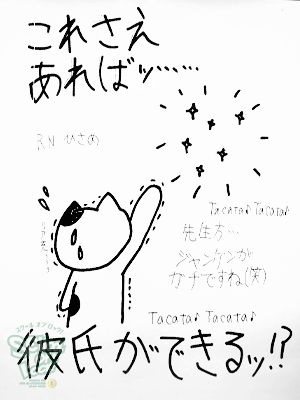 これさえ
あればッ……
RN ひさめ
Tacata♪ Tacata♪
先生方…
ジャンケンが
ガチですね(笑)
Tacata♪ Tacata♪
彼氏ができるッ!?